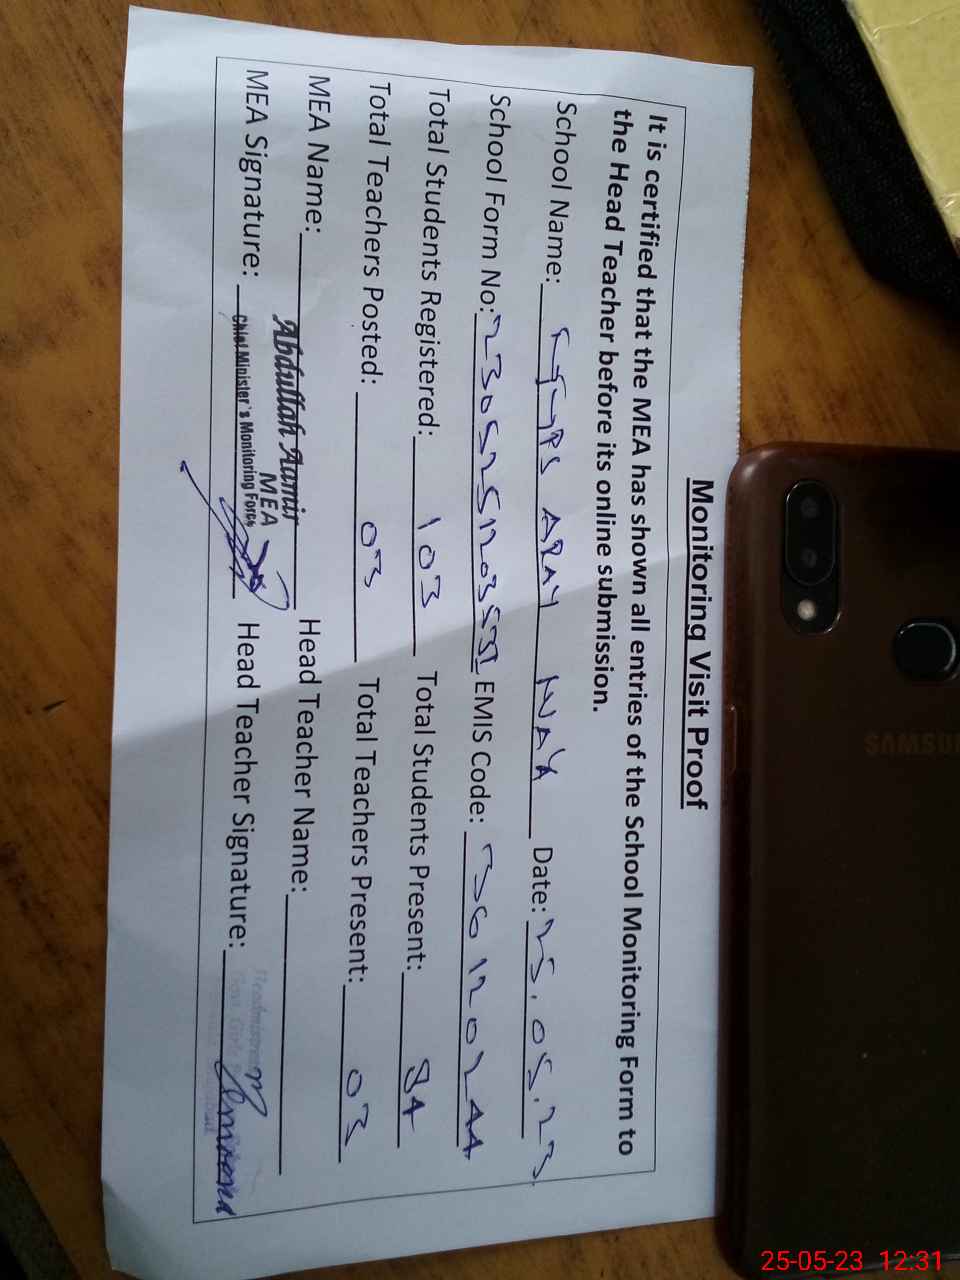 Monitoring Visit Proof
It is certified that the MEA has shown all entries of the School Monitoring Form to
the Head Teacher before its online submission.
School Name: GGPS Date: 25.05.23.
School Form No: EMIS Code:
Total Students Registered: 103 Total Students Present:
Total Teachers Posted: 03 Total Teachers Present: 03
MEA Name: Abdullah Aamir Head Teacher Name:
MEA
MEA Signature: Chief Minister's Monitoring Force Head Teacher Signature:
SAMSU
25-05-23 12:31